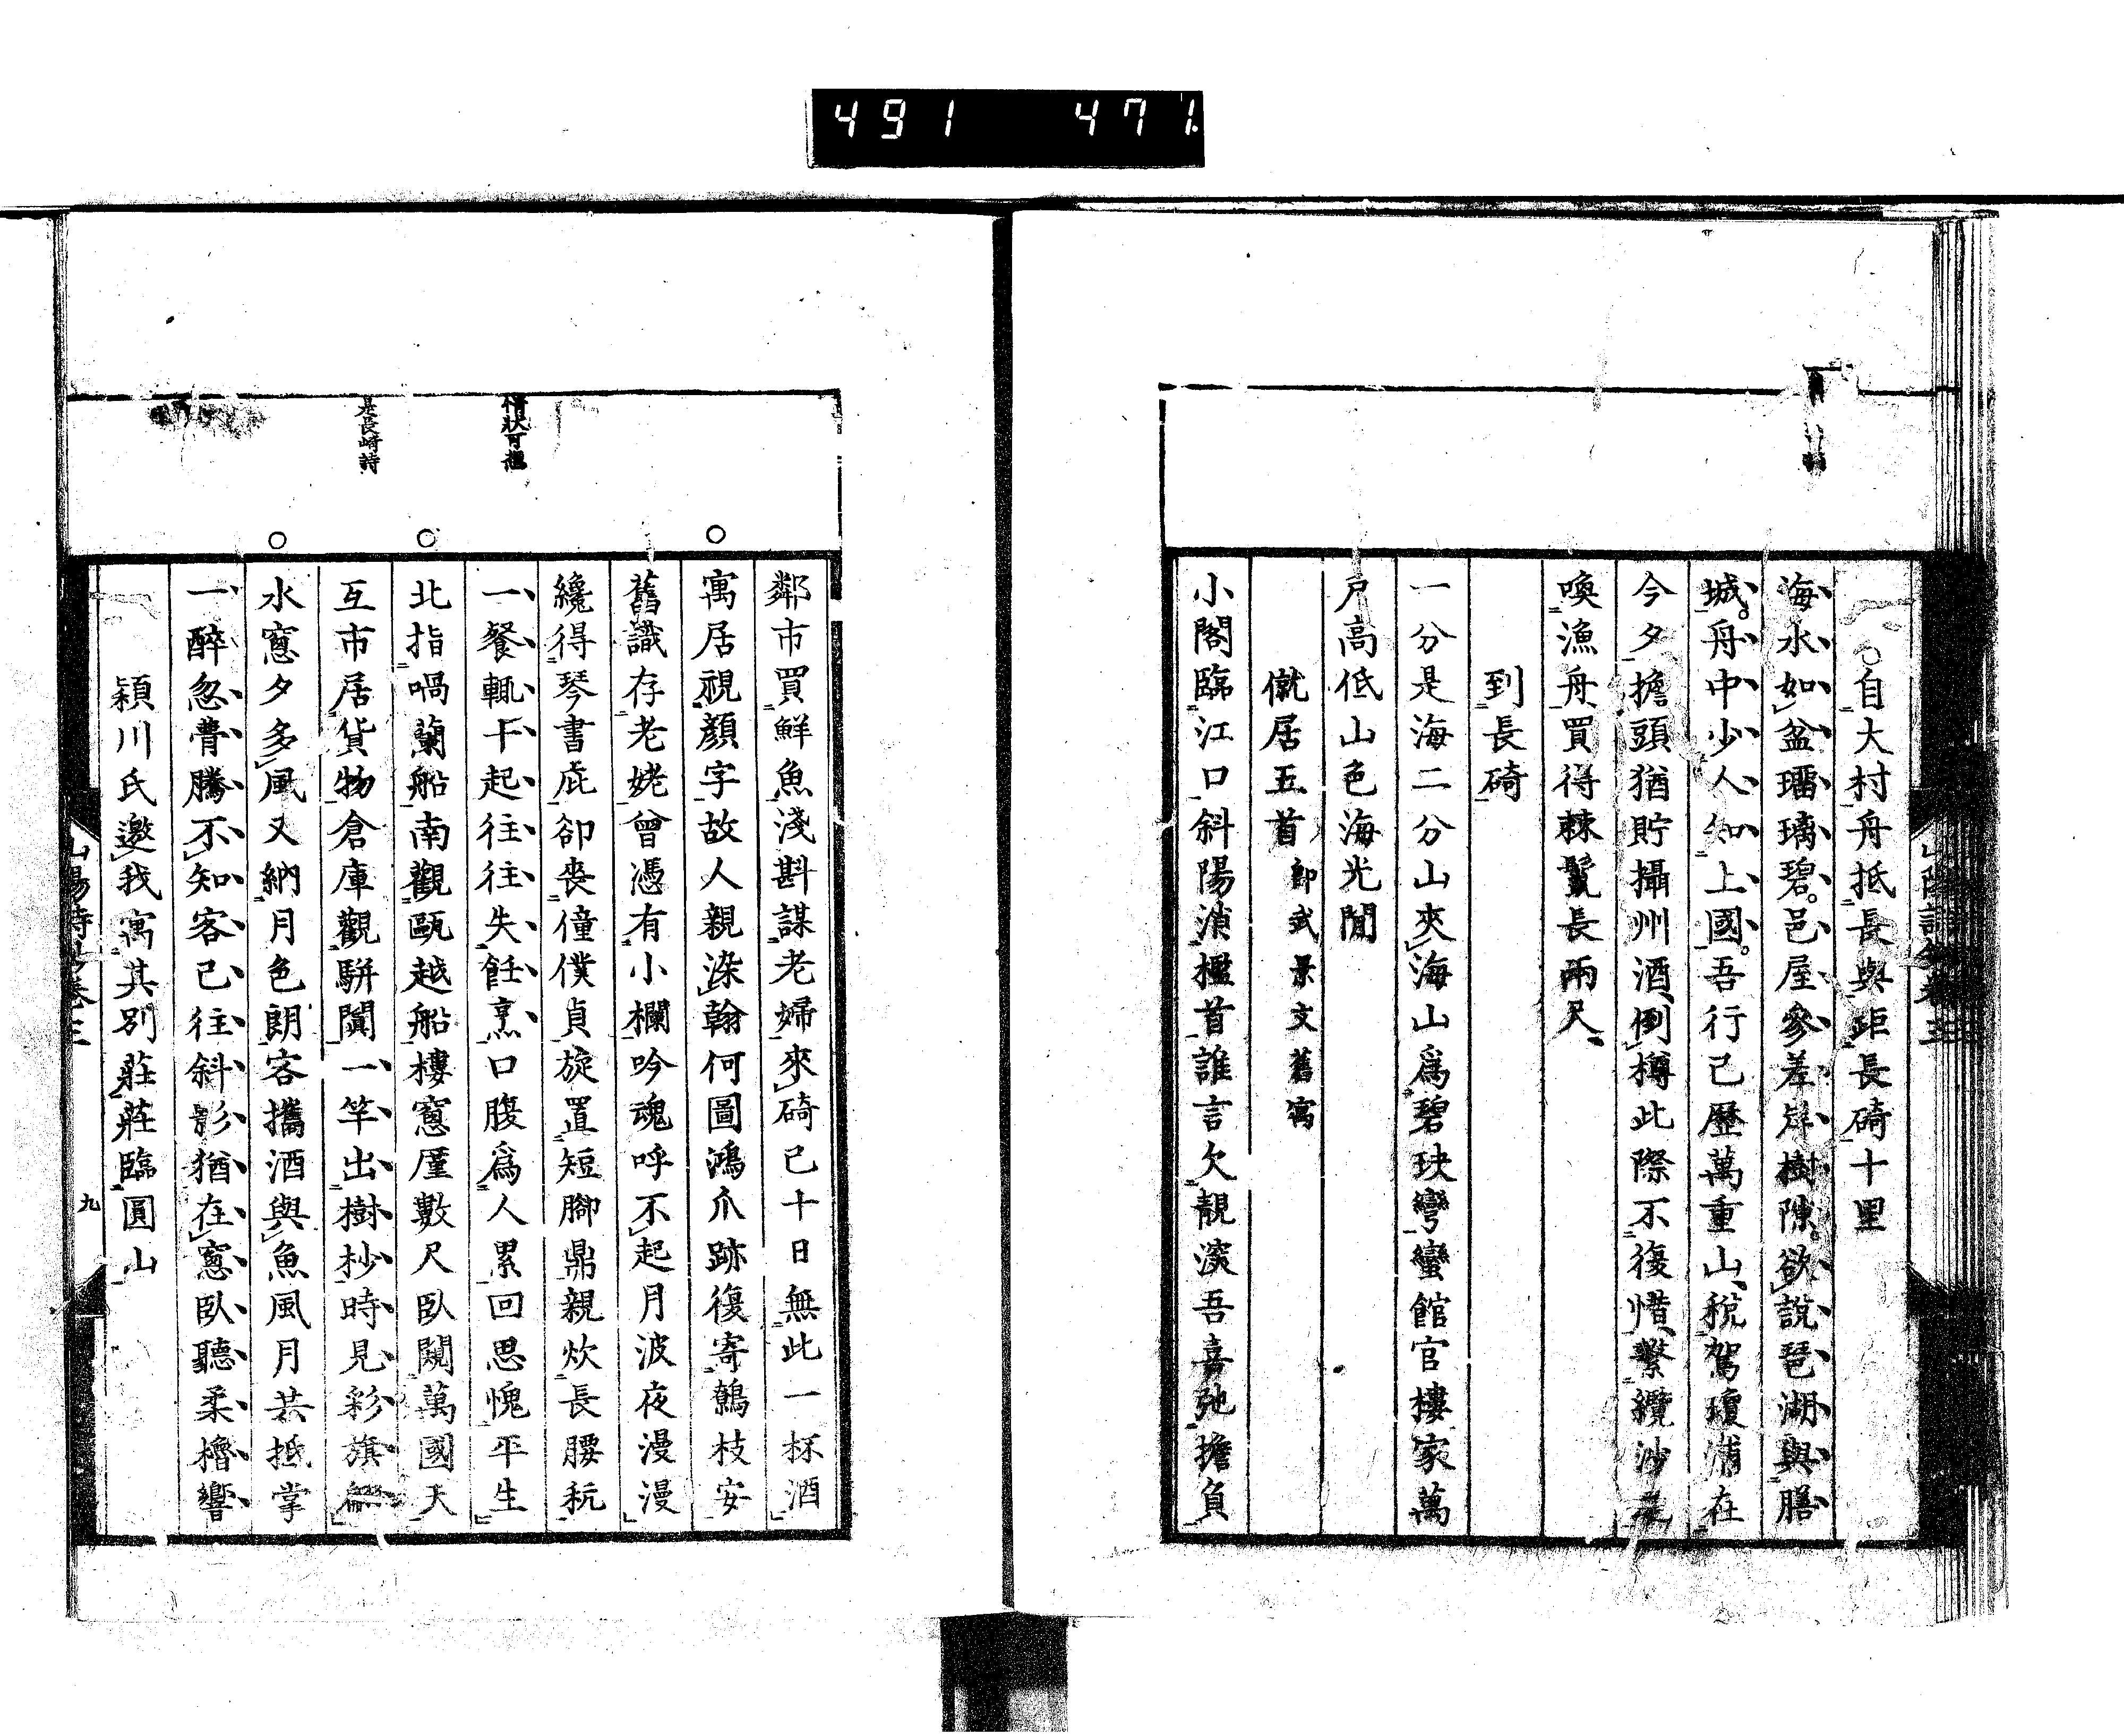 491 471
自大村舟抵長與距長碕十里
海水如盆瑠璃碧邑屋參差岸樹隙欲說琶湖與膳
城舟中少人知上國吾行已歷萬重山稅駕瓊浦在
今夕擔頭猶貯攝州酒倒樽此際不復惜繫纜沙
喚漁舟買得棘鬣長兩尺
到長碕
一分是海二分山夾海山爲碧玦彎蠻館官樓家萬
戶高低山色海光閒
僦居五首 卽武景文舊寓
小閣臨江口斜陽湞檻首誰言欠靚深吾喜弛擔負
鄰市買鮮魚淺斟謀老婦來碕已十日無此一杯酒
寓居視顏字故人親染翰何圖鴻爪跡復寄鷦枝安
舊識存老姥曾憑有小欄吟魂呼不起月波夜漫漫
情狀可想
纔得琴書庇卻喪僮僕貞旋置短腳鼎親炊長腰秔
一餐輒十起往往失飪烹口腹爲人累回思愧平生
北指喎蘭船南觀甌越船樓窻僅數尺臥闚萬國天
是長崎詩
互市居貨物倉庫觀駢闐一竿出樹杪時見彩旗
水窻夕多風又納月色朗客攜酒與魚風月共抵掌
一醉忽瞢騰不知客已往斜影猶在窻臥聽柔櫓響
潁川氏邀我寓其別莊莊臨圓山
山陽詩鈔卷三
九